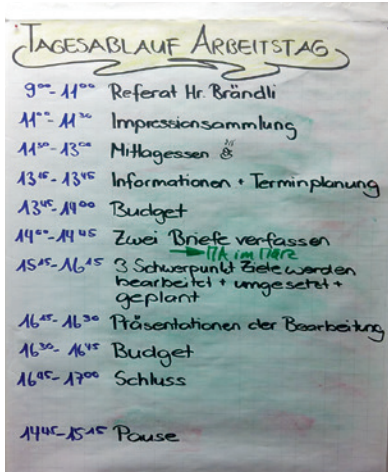 TAGESABLAUF ARBEITSTAG
9⁰⁰-11⁰⁰ Referat Hr. Brändli
11⁰⁰-11³⁰ Impressionsammlung
11³⁰-13⁰⁰ Mittagessen
13¹⁵-13⁴⁵ Informationen + Terminplanung
13⁴⁵-14⁰⁰ Budget
14⁰⁰-14⁴⁵ Zwei Briefe verfassen
→ MA im März
15¹⁵-16¹⁵ 3 Schwerpunkt Ziele werden
bearbeitet + umgesetzt +
geplant
16¹⁵-16³⁰ Präsentationen der Bearbeitung
16³⁰-16⁴⁵ Budget
16⁴⁵-17⁰⁰ Schluss
14⁴⁵-15¹⁵ Pause